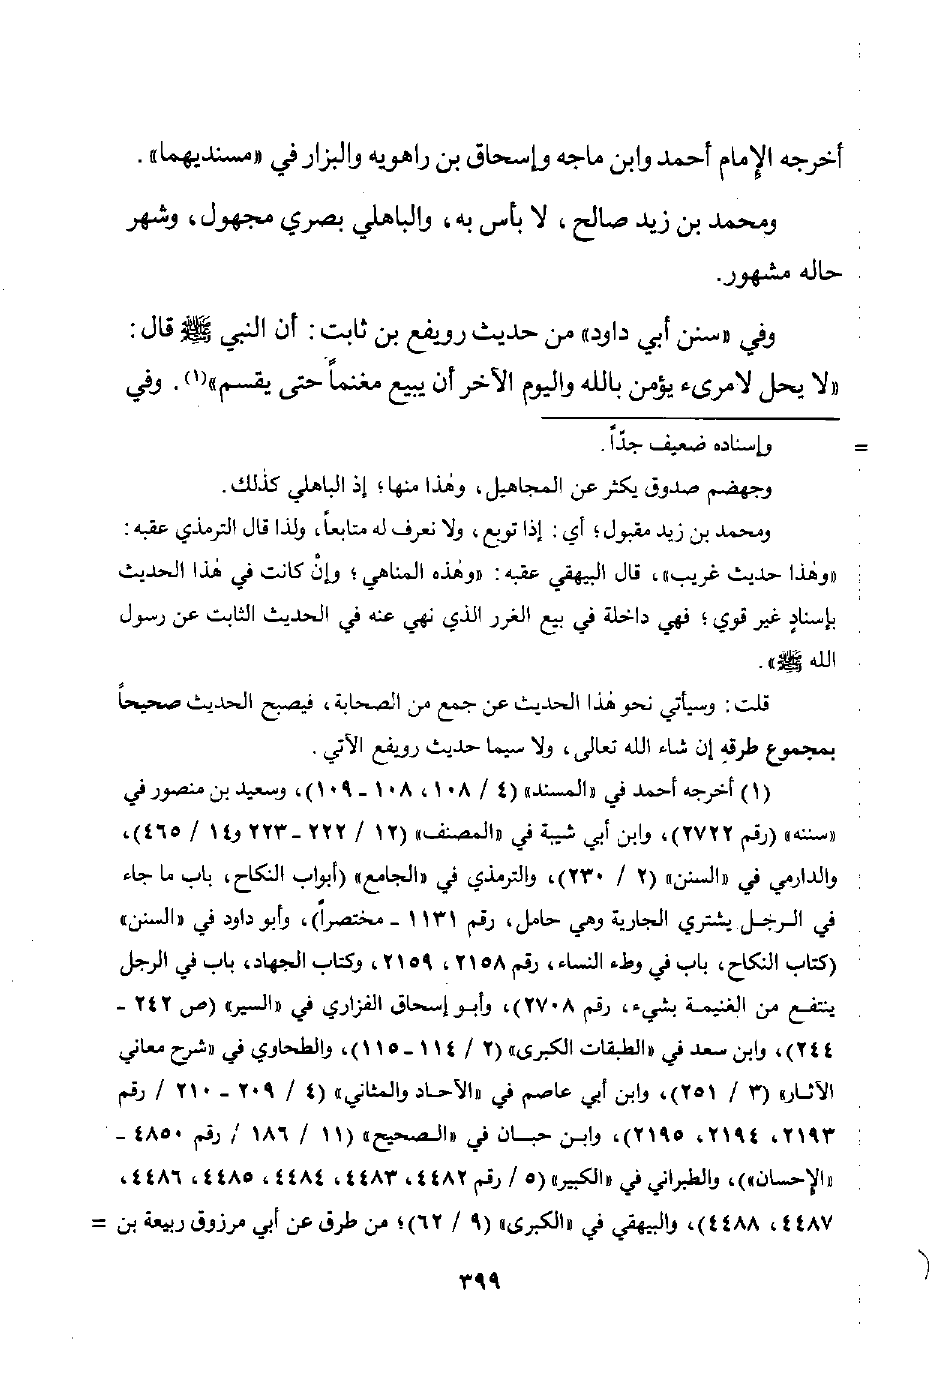 أخرجه الإمام أحمد وابن ماجه وإسحاق بن راهويه والبزار في «مسنديهما» .
ومحمد بن زيد صالح ، لا بأس به، والباهلي بصري مجهول، وشهر
حاله مشهور.
وفي «سنن أبي داود» من حديث رويفع بن ثابت : أن النبي ﷺ قال :
«لا يحل لامرىء يؤمن بالله واليوم الآخر أن يبيع مغنماً حتى يقسم»(١). وفي
= وإسناده ضعيف جدّاً.
وجهضم صدوق يكثر عن المجاهيل، وهٰذا منها؛ إذ الباهلي كذٰلك.
ومحمد بن زيد مقبول؛ أي: إذا توبع، ولا نعرف له متابعاً، ولذا قال الترمذي عقبه:
«وهٰذا حديث غريب»، قال البيهقي عقبه: «وهٰذه المناهي؛ وإنْ كانت في هٰذا الحديث
بإسنادٍ غير قوي؛ فهي داخلة في بيع الغرر الذي نهي عنه في الحديث الثابت عن رسول
الله ﷺ».
قلت: وسيأتي نحو هٰذا الحديث عن جمع من الصحابة، فيصبح الحديث صحيحاً
بمجموع طرقه إن شاء الله تعالى، ولا سيما حديث رويفع الآتي .
(١) أخرجه أحمد في «المسند» (٤ / ١٠٨، ١٠٨ - ١٠٩)، وسعيد بن منصور في
«سننه» (رقم ٢٧٢٢)، وابن أبي شيبة في «المصنف» (١٢ / ٢٢٢ - ٢٢٣ و١٤ / ٤٦٥)،
والدارمي في «السنن» (٢ / ٢٣٠)، والترمذي في «الجامع» (أبواب النكاح، باب ما جاء
في الرجل يشتري الجارية وهي حامل، رقم ١١٣١ - مختصراً)، وأبو داود في «السنن»
(كتاب النكاح، باب في وطء النساء، رقم ٢١٥٨، ٢١٥٩، وكتاب الجهاد، باب في الرجل
ينتفع من الغنيمة بشيء، رقم ٢٧٠٨)، وأبو إسحاق الفزاري في «السير» (ص ٢٤٢ -
٢٤٤)، وابن سعد في «الطبقات الكبرى» (٢ / ١١٤ - ١١٥)، والطحاوي في «شرح معاني
الآثار» (٣ / ٢٥١)، وابن أبي عاصم في «الآحاد والمثاني» (٤ / ٢٠٩ - ٢١٠ / رقم
٢١٩٣، ٢١٩٤، ٢١٩٥)، وابن حبان في «الصحيح» (١١ / ١٨٦ / رقم ٤٨٥٠ -
«الإحسان»)، والطبراني في «الكبير» (٥ / رقم ٤٤٨٢، ٤٤٨٣، ٤٤٨٤، ٤٤٨٥، ٤٤٨٦،
٤٤٨٧، ٤٤٨٨)، والبيهقي في «الكبرى» (٩ / ٦٢)؛ من طرق عن أبي مرزوق ربيعة بن =
٣٩٩